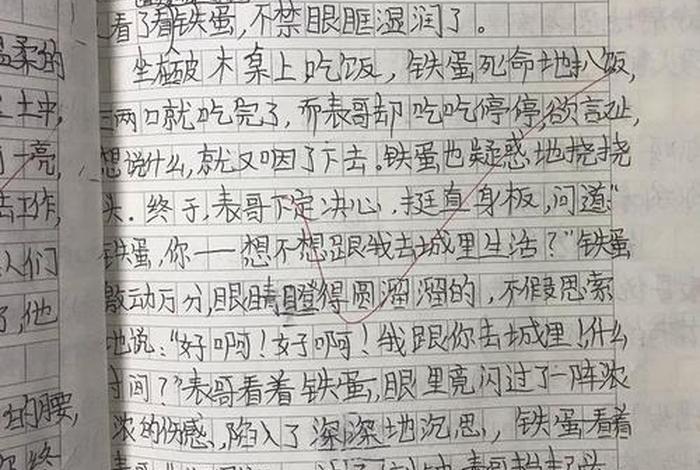 温柔的
土中,
一亮,
去工作,
人们
了,他
的腰,
看了看铁蛋,不禁眼眶湿润了。
坐在破木桌上吃饭,铁蛋死命地扒饭,
三两口就吃完了,而表哥却吃吃停停,欲言又止,
想说什么,就又咽了下去。铁蛋也疑惑地挠挠
头。终于,表哥下定决心,挺直身板,问道:“
铁蛋,你——想不想跟我去城里生活?”铁蛋
激动万分,眼睛瞪得圆溜溜的,不假思索
地说:“好啊!好啊!我跟你去城里!什么
时间?”表哥看着铁蛋,眼里竟闪过了一阵浓
浓的伤感,陷入了深深地沉思,铁蛋看着
表哥